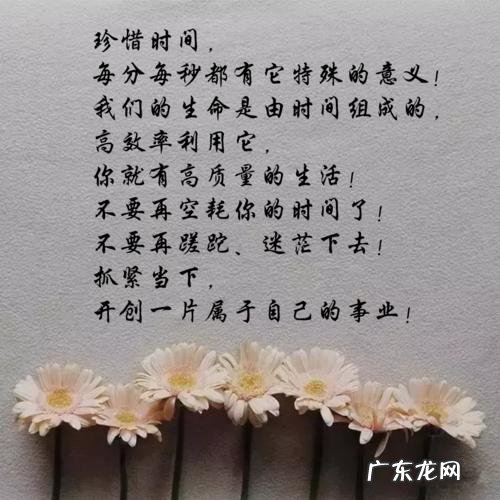 珍惜时间，
每分每秒都有它特殊的意义！
我们的生命是由时间组成的，
高效率利用它，
你就有高质量的生活！
不要再空耗你的时间了！
不要再蹉跎、迷茫下去！
抓紧当下，
开创一片属于自己的事业！
广东龙网